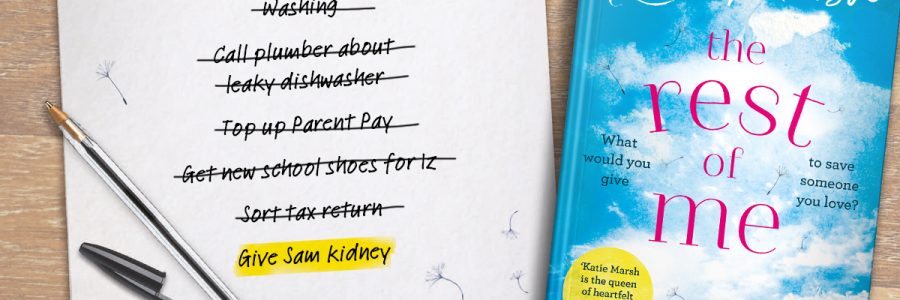 Washing
Call plumber about
leaky dishwasher
Top up Parent Pay
Get new school shoes for Iz
Sort tax return
Give Sam kidney
the
rest
of
me
What
would you
give
to save
someone
you love?
'Katie Marsh
is the queen
of heartfelt